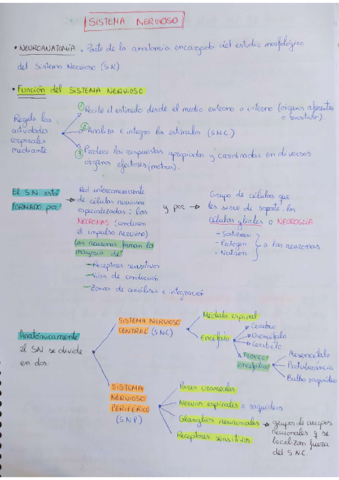 SISTEMA NERVIOSO
• NEUROANATOMÍA. Parte de la anatomía encargada del estudio morfológico
del Sistema Nervioso (SN)
• Función del SISTEMA NERVIOSO
Regula las
actividades
corporales
mediante
1 Recibe el estímulo desde el medio externo o interno (órganos aferentes
o sensitivos).
2 Analiza e integra los estímulos (SNC)
3 Produce las respuestas apropiadas y coordinadas en diversos
órganos efectores (motora).
El SN está
FORMADO por
Red
de células nerviosas
especializadas: las
NEURONAS (conducen
el impulso nervioso)
Las neuronas forman la
mayoría de
- Receptores sensitivos
- Vías de conducción
- Zonas de análisis e integración
y por
Grupo de células que
les sirve de soporte: las
células gliales o NEUROGLIA
- Sostienen
- Protegen
- Nutren
a las neuronas
Anatómicamente
el SN se divide
en dos
SISTEMA NERVIOSO
CENTRAL (SNC)
Médula espinal
Encéfalo
Cerebro
Diencéfalo
Cerebelo
Tronco
encéfalo
Mesencéfalo
Protuberancia
Bulbo raquídeo
SISTEMA
NERVIOSO
PERIFÉRICO
(SNP)
Pares craneales
Nervios espinales o raquídeos
Ganglios neuronales
grupos de cuerpos
neuronales q se
localizan fuera
del SNC.
Receptores sensitivos